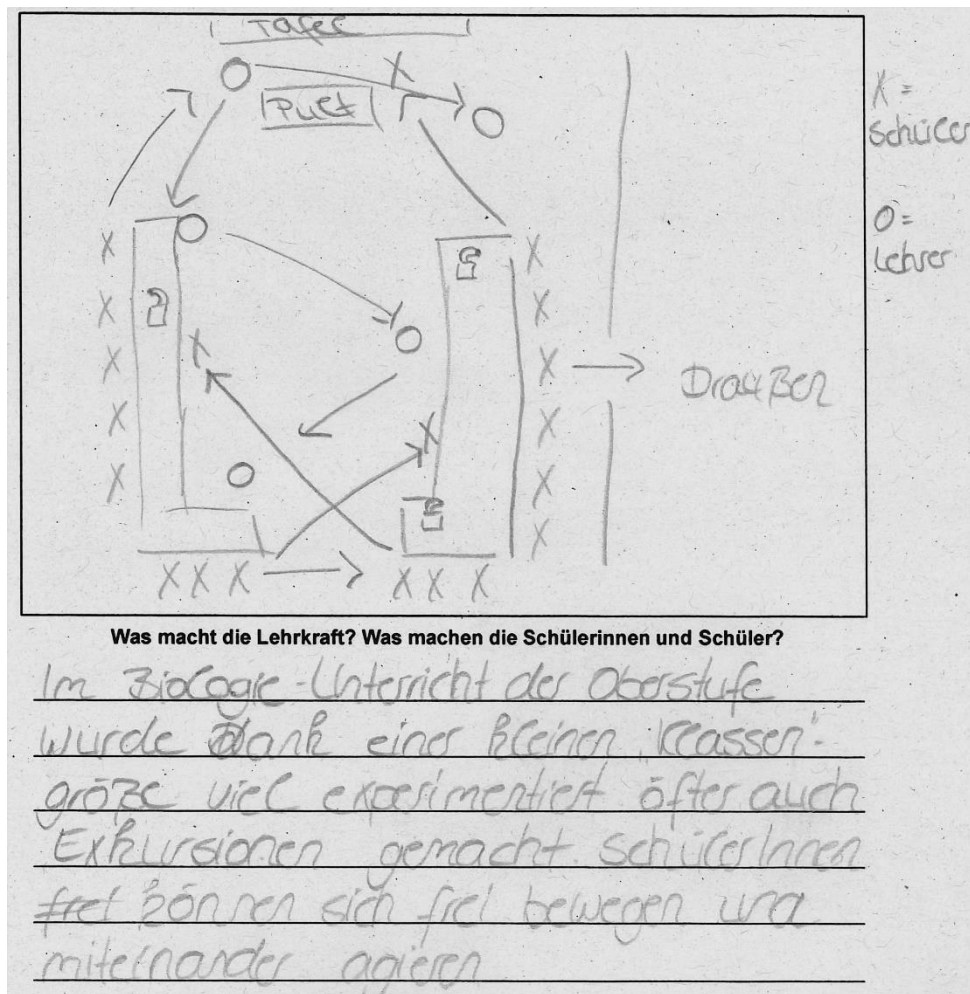 Tafel
Pult
X =
Schüler
O =
Lehrer
Draußen
X X X X X
X X X X X X
X X X
X X X
X
X
X
O
O
O
O
O
Was macht die Lehrkraft? Was machen die Schülerinnen und Schüler?
Im Biologie-Unterricht der Oberstufe
wurde Dank einer kleinen Klassen-
größe viel experimentiert öfter auch
Exkursionen gemacht. SchülerInnen
frei können sich frei bewegen und
miteinander agieren